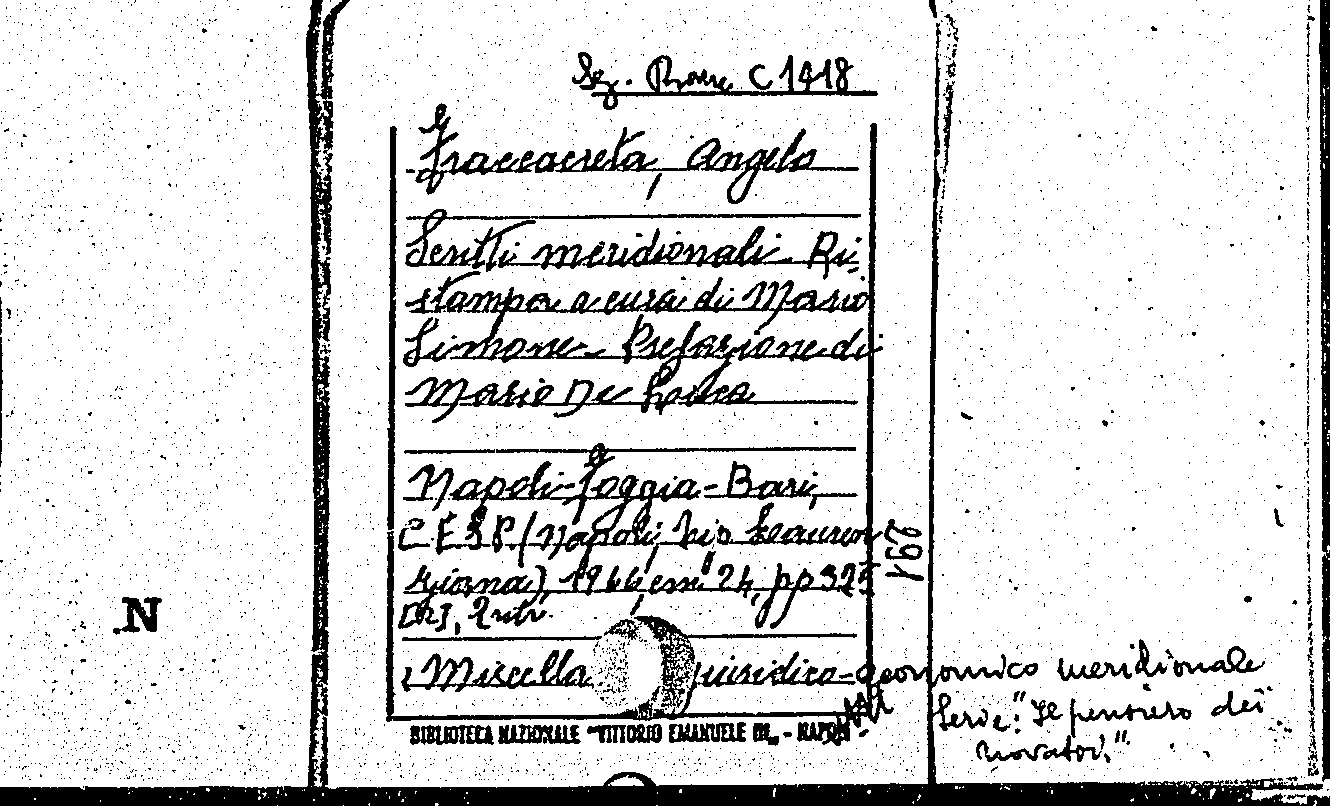 Sez. C 1418
Fraccacreta, Angelo
Scritti meridionali. Ri-
stampa a cura di Mario
Simone. Prefazione di
Mario De Luca
Napoli-Foggia-Bari,
C.E.S.P. (Napoli,
1966, cm 24, pp 325
[2],
Miscella uridico-economico meridionale
Serie: "Il pensiero dei
novatori"
BIBLIOTECA NAZIONALE "VITTORIO EMANUELE III" - NAPOLI
291
N